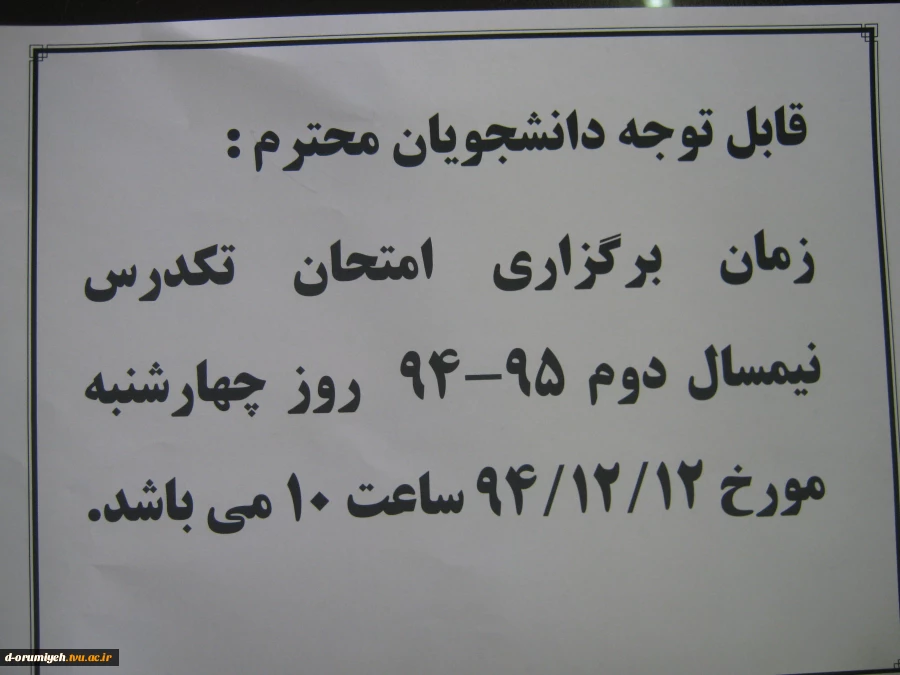 قابل توجه دانشجویان محترم :
زمان برگزاری امتحان تکدرس
نیمسال دوم ۹۵-۹۴ روز چهارشنبه
مورخ ۹۴/۱۲/۱۲ ساعت ۱۰ می باشد.
d-orumiyeh.tvu.ac.ir